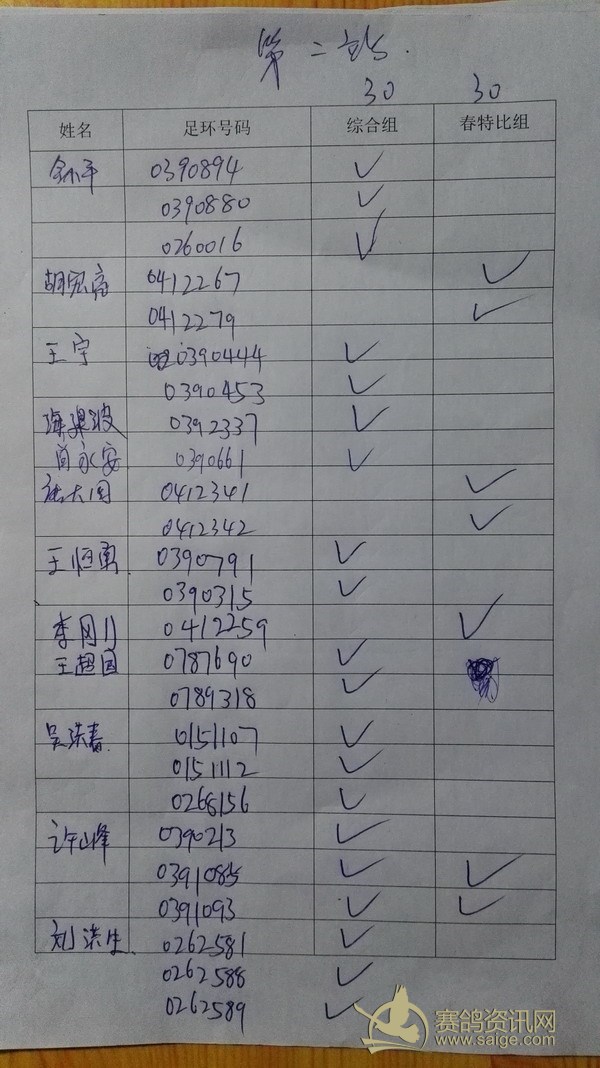 第二站.
30 30
姓名 足环号码 综合组 春特比组
0390894 ✓
0390880 ✓
0260016 ✓
胡宏亮 0412267 ✓
0412279 ✓
王宇 0390444 ✓
0390453 ✓
0392337 ✓
肖永安 0390661 ✓
0412341 ✓
0412342 ✓
王恒勇 0390791 ✓
0390315 ✓
李刚 0412259 ✓
王超国 0787690 ✓
0789318 ✓
吴洪春 0151107 ✓
0151112 ✓
0268156 ✓
许山峰 0390213 ✓
0391085 ✓ ✓
0391093 ✓ ✓
刘洪生 0262581 ✓
0262588 ✓
0262589 ✓
赛鸽资讯网
www.saige.com